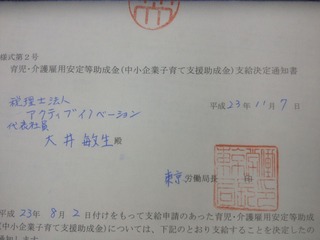 様式第2号
育児・介護雇用安定等助成金(中小企業子育て支援助成金)支給決定通知書
平成 23年 11月 7日
税理士法人
アクティブイノベーション
代表社員
大井敏生 殿
東京 労働局長 印
平成 23年 8月 2日付けをもって支給申請のあった育児・介護雇用安定等助成金
(中小企業子育て支援助成金)については、下記のとおり支給することを決定したの